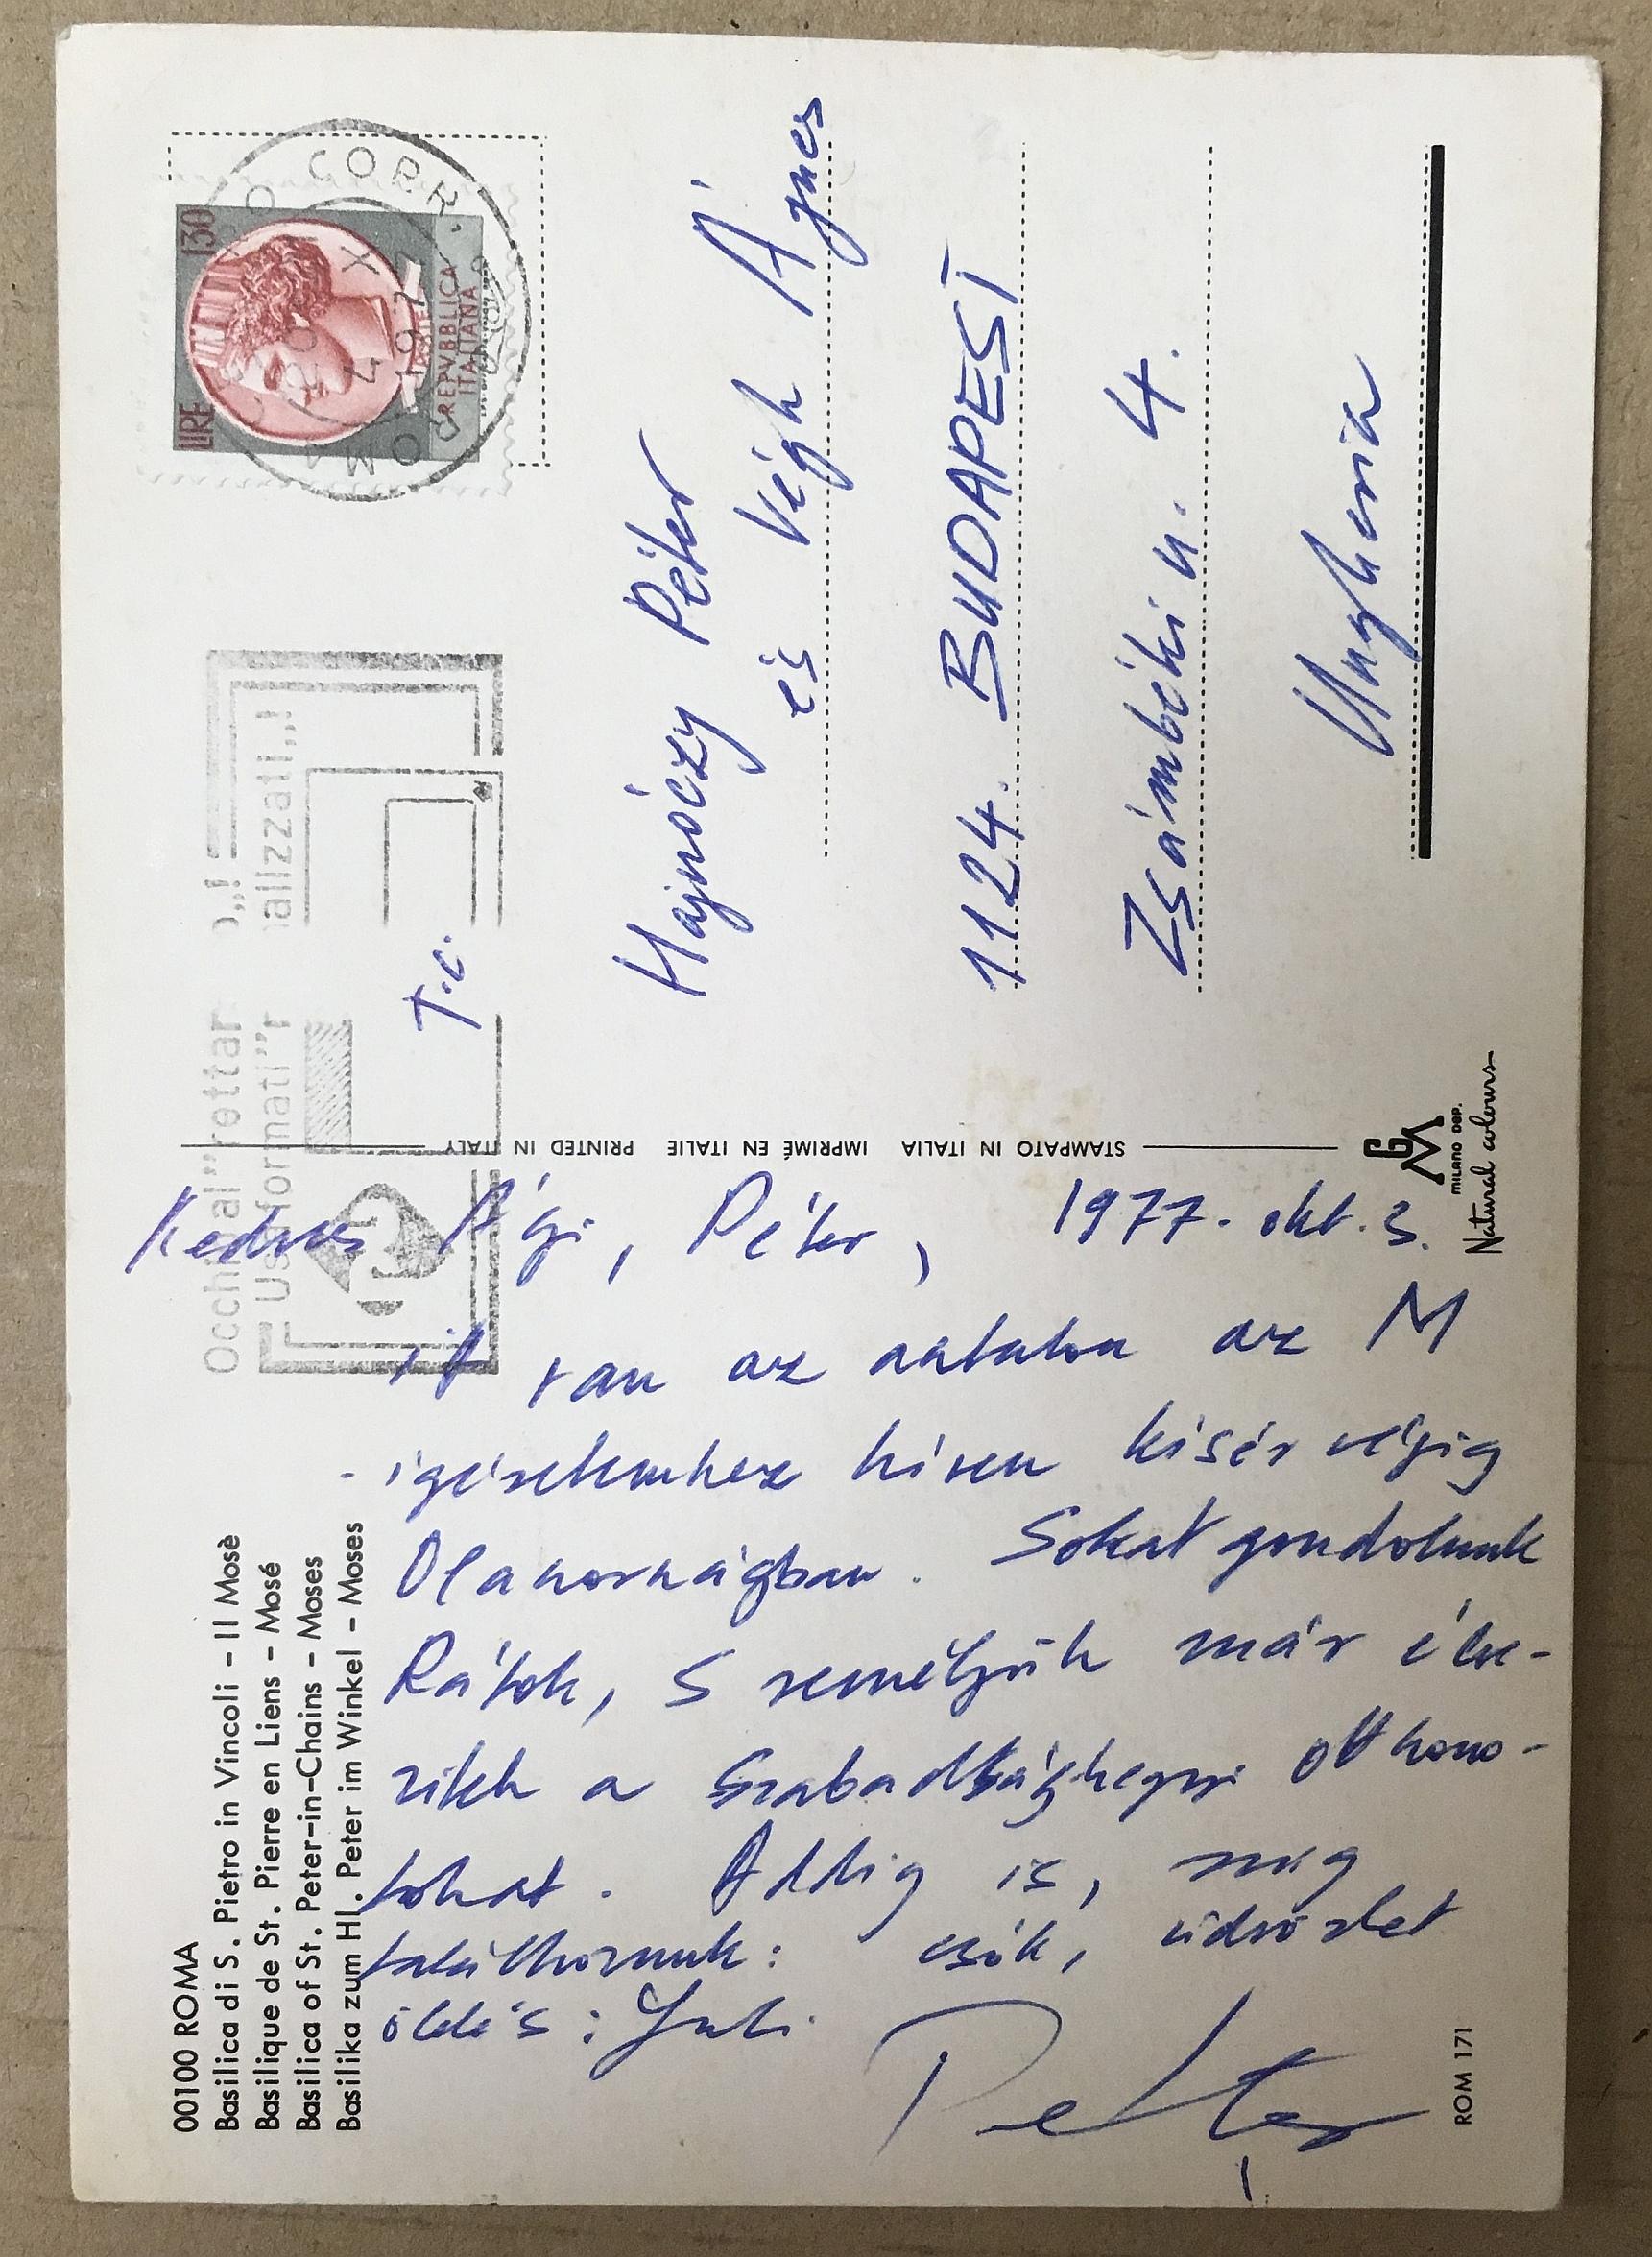 00100 ROMA
Basilica di S. Pietro in Vincoli - Il Mosè
Basilique de St. Pierre en Liens - Mosé
Basilica of St. Peter-in-Chains - Moses
Basilika zum Hl. Peter im Winkel - Moses
Kedves Ági, Péter,
1977. okt. 3.
itt van az asztalon az M
- ígéretemhez híven kísér végig
Olaszországban. Sokat gondolunk
Rátok, s reméljük már élve-
zitek a Szabadsághegyi otthono-
tokat. Addig is, míg
találkozunk: csók, üdvözlet
ölelés: Juli
Péter
ROM 171
STAMPATO IN ITALIA IMPRIMÉ EN ITALIE PRINTED IN ITALY
GM
MILANO DEP.
Natural colours
Occhi al rettar
Us formati
alizzati
LIRE 130
REPVBBLICA
ITALIANA
ROMA CORR.
4 X
T.c.
Hajnóczy Péter
és Végh Ágnes
1124. BUDAPEST
Zsámbéki u. 4.
Ungheria